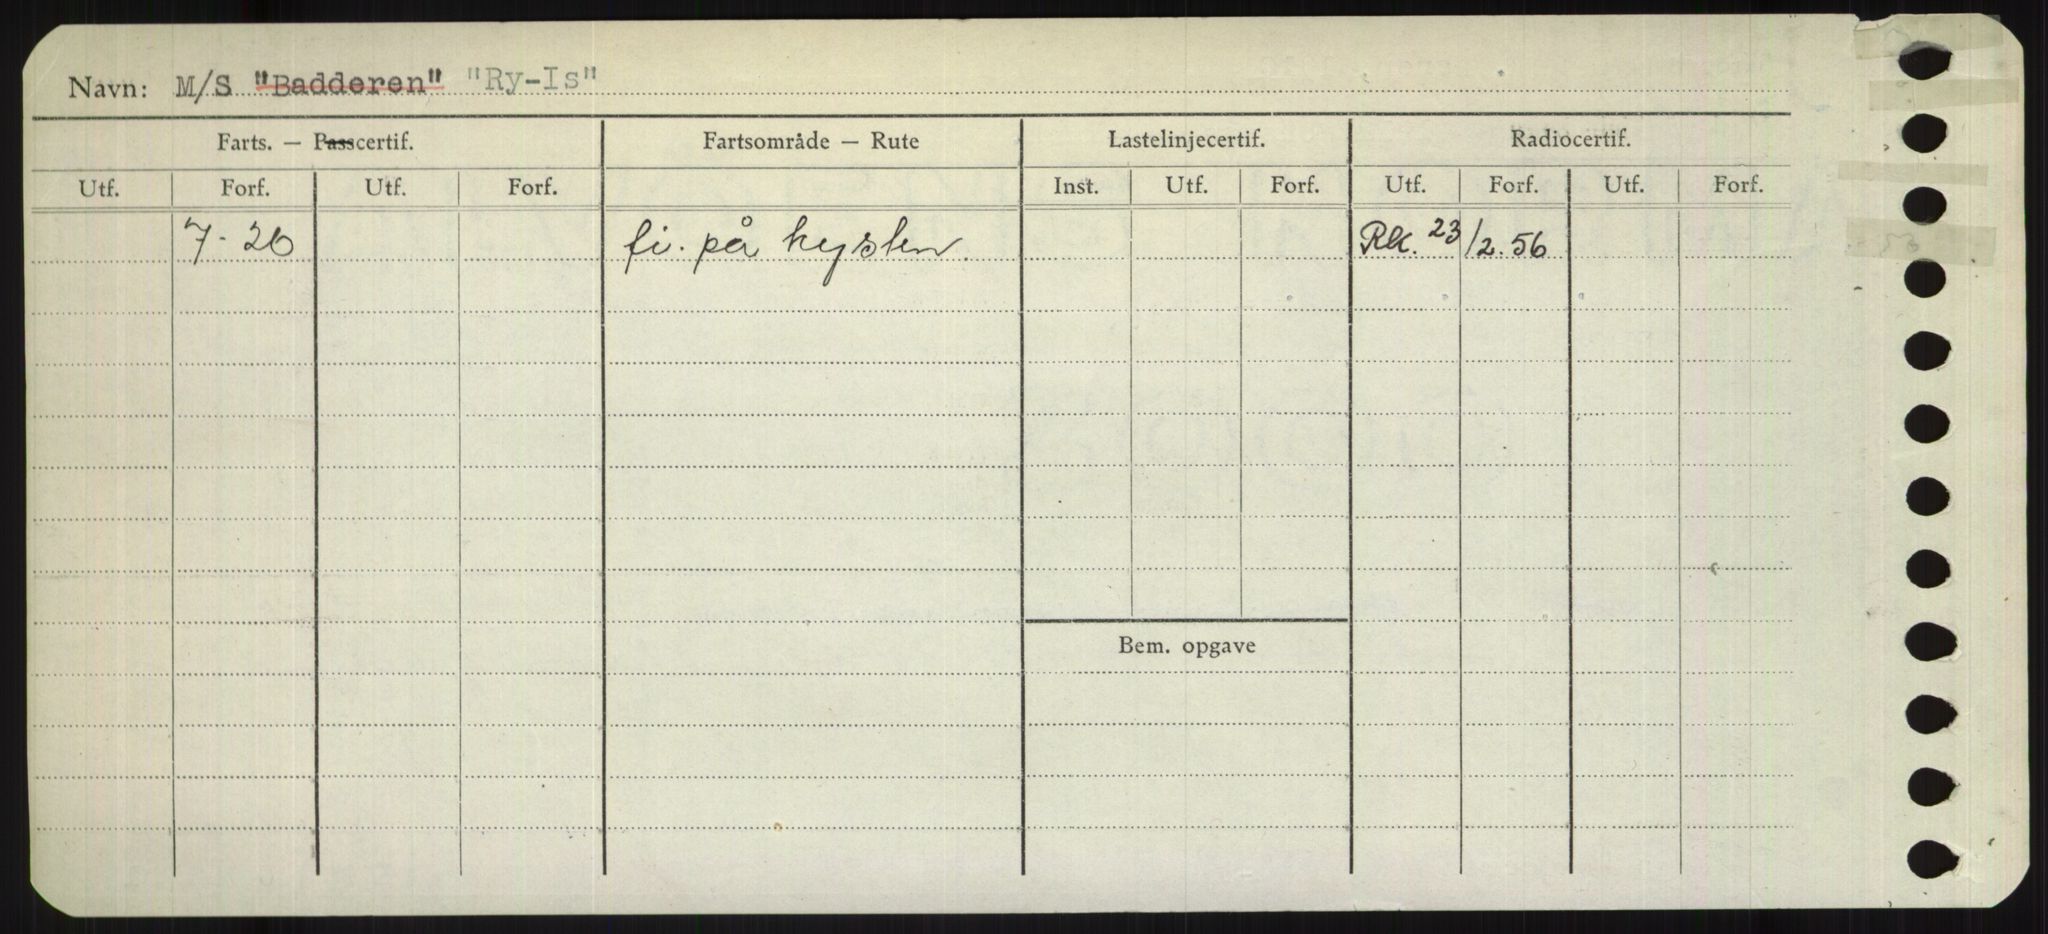 Navn: M/S "Badderen" "Ry-Is"
Farts. — Passcertif. Fartsområde — Rute Lastelinjecertif. Radiocertif.
Utf. Forf. Utf. Forf. Inst. Utf. Forf. Utf. Forf. Utf. Forf.
7-26 fi. på kysten. Rk. 23/2.56
Bem. opgave